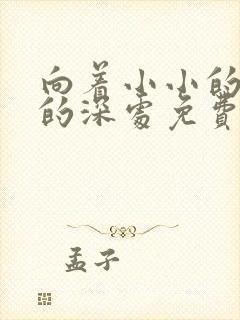 向着小小的
的深处免費
孟子